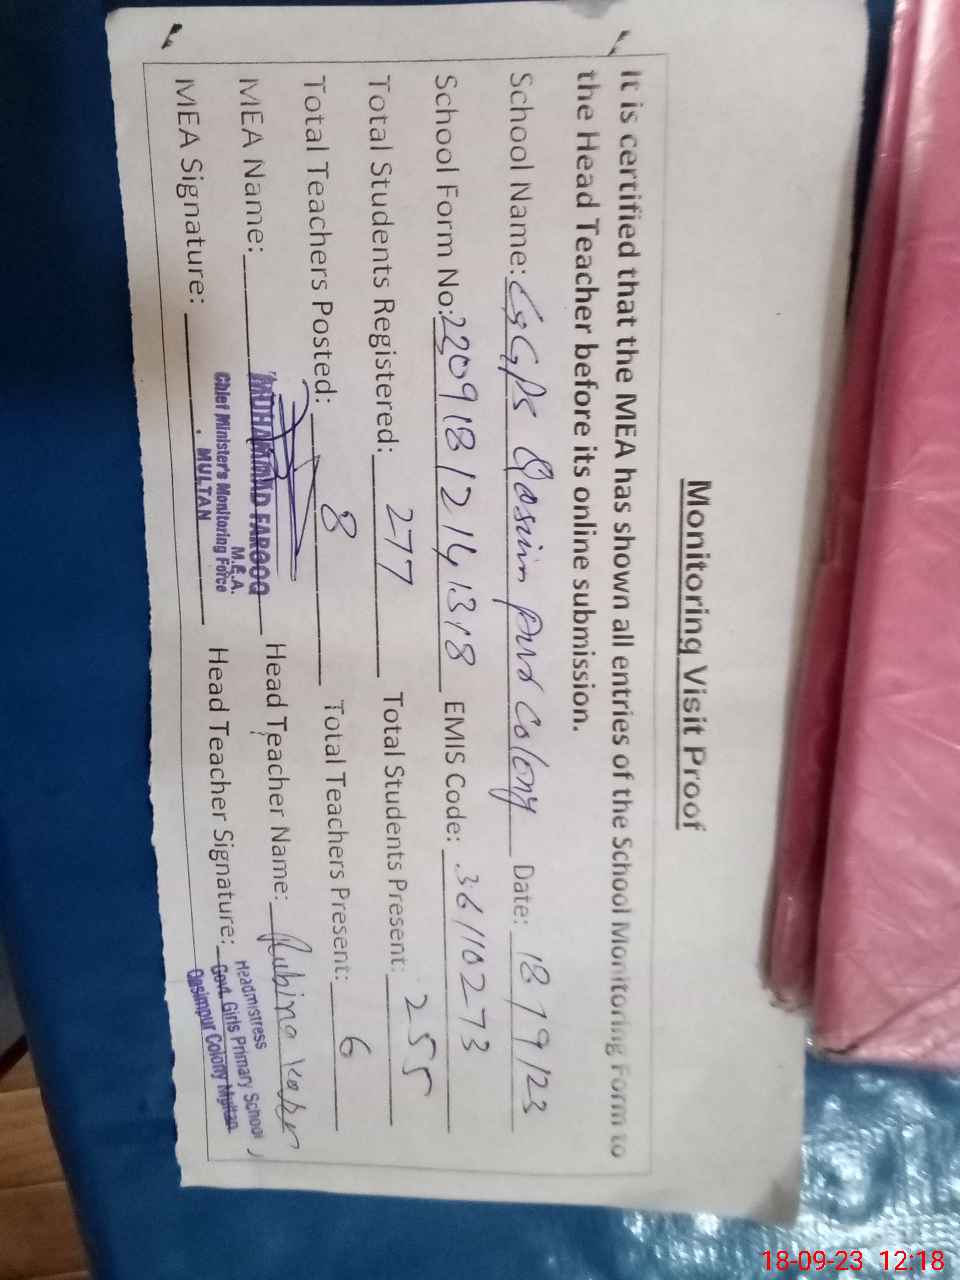 Monitoring Visit Proof
It is certified that the MEA has shown all entries of the School Monitoring Form to
the Head Teacher before its online submission.
School Name: GGPS Qasim pur colony Date: 18/9/23
School Form No: 2209181214318 EMIS Code: 36110273
Total Students Registered: 277 Total Students Present: 255
Total Teachers Posted: 8 Total Teachers Present: 6
MEA Name: MUHAMMAD FAROOQ Head Teacher Name: Rubina
M.E.A.
Chief Minister's Monitoring Force
MULTAN
MEA Signature: Head Teacher Signature:
Headmistress
Govt. Girls Primary School
Qasimpur Colony Multan.
18-09-23 12:18